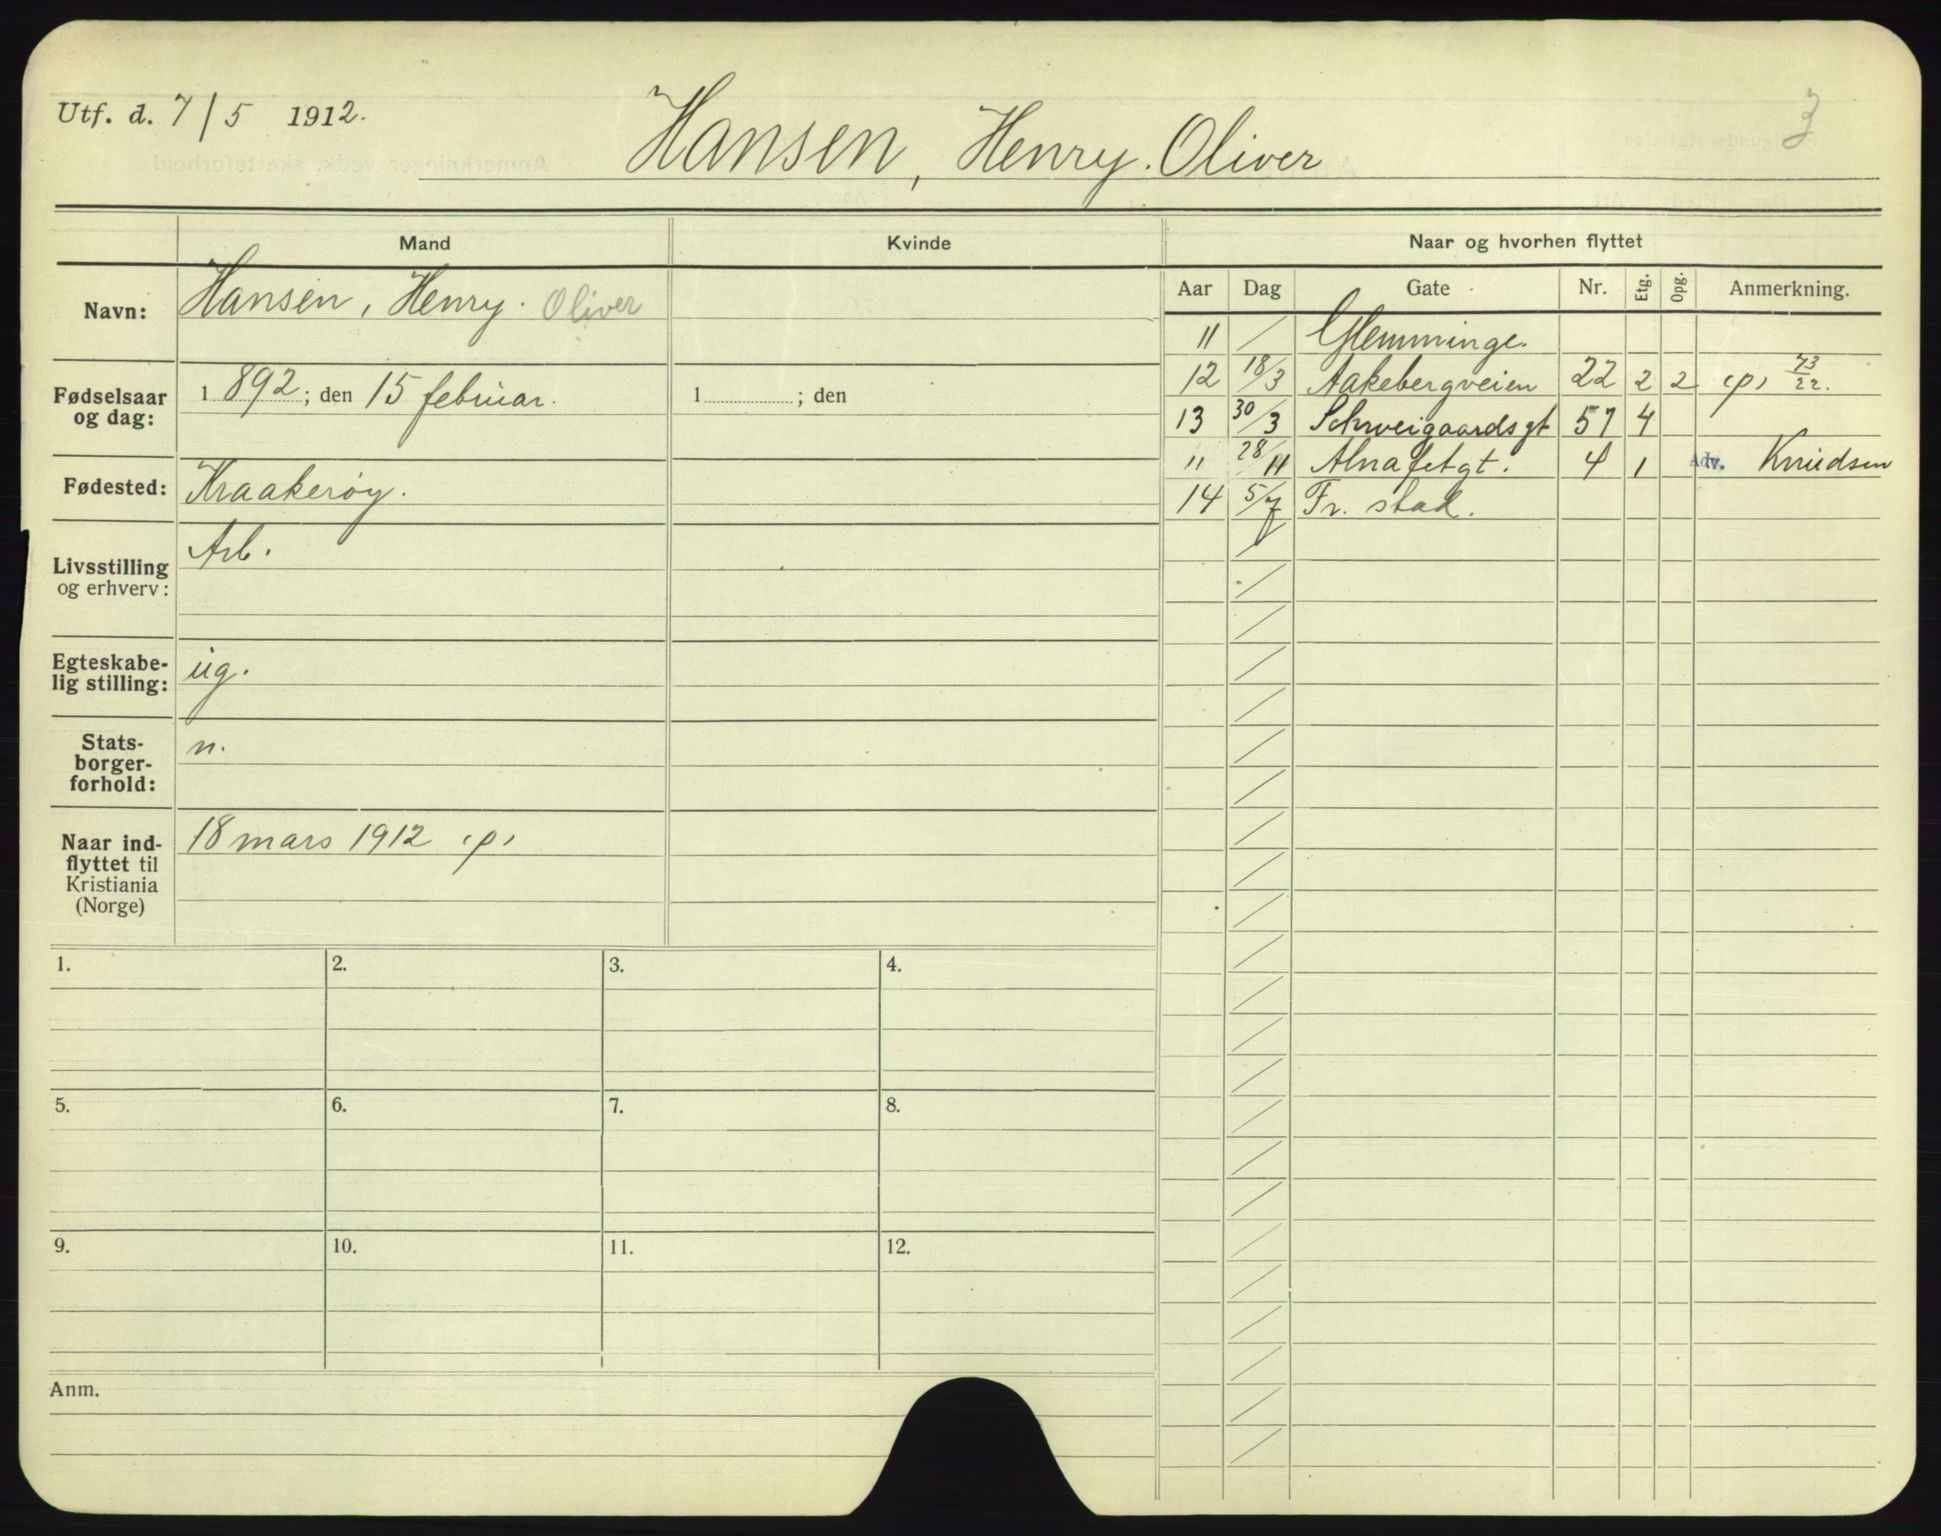 Utf. d. 7/5 1912.
Hansen, Henry. Oliver
3
Mand
Kvinde
Naar og hvorhen flyttet
Navn:
Hansen, Henry. Oliver
Fødselsaar og dag:
1892; den 15 februar.
1 ; den
Fødested:
Kraakerøy.
Livsstilling og erhverv:
Arb.
Egteskabe-
lig stilling:
ug.
Stats-
borger-
forhold:
n.
Naar ind-
flyttet til
Kristiania
(Norge)
18 mars 1912 (p)
Aar Dag Gate Nr. Etg. Opg. Anmerkning.
11 / Glemminge.
12 18/3 Aakebergveien 22 2 2 (p) 73/22.
13 30/3 Schweigaardsgt 57 4
" 28/11 Alnafetgt. 4 1 Adv. Knudsen
14 5/7 Fr. stad.
1. 2. 3. 4.
5. 6. 7. 8.
9. 10. 11. 12.
Anm.